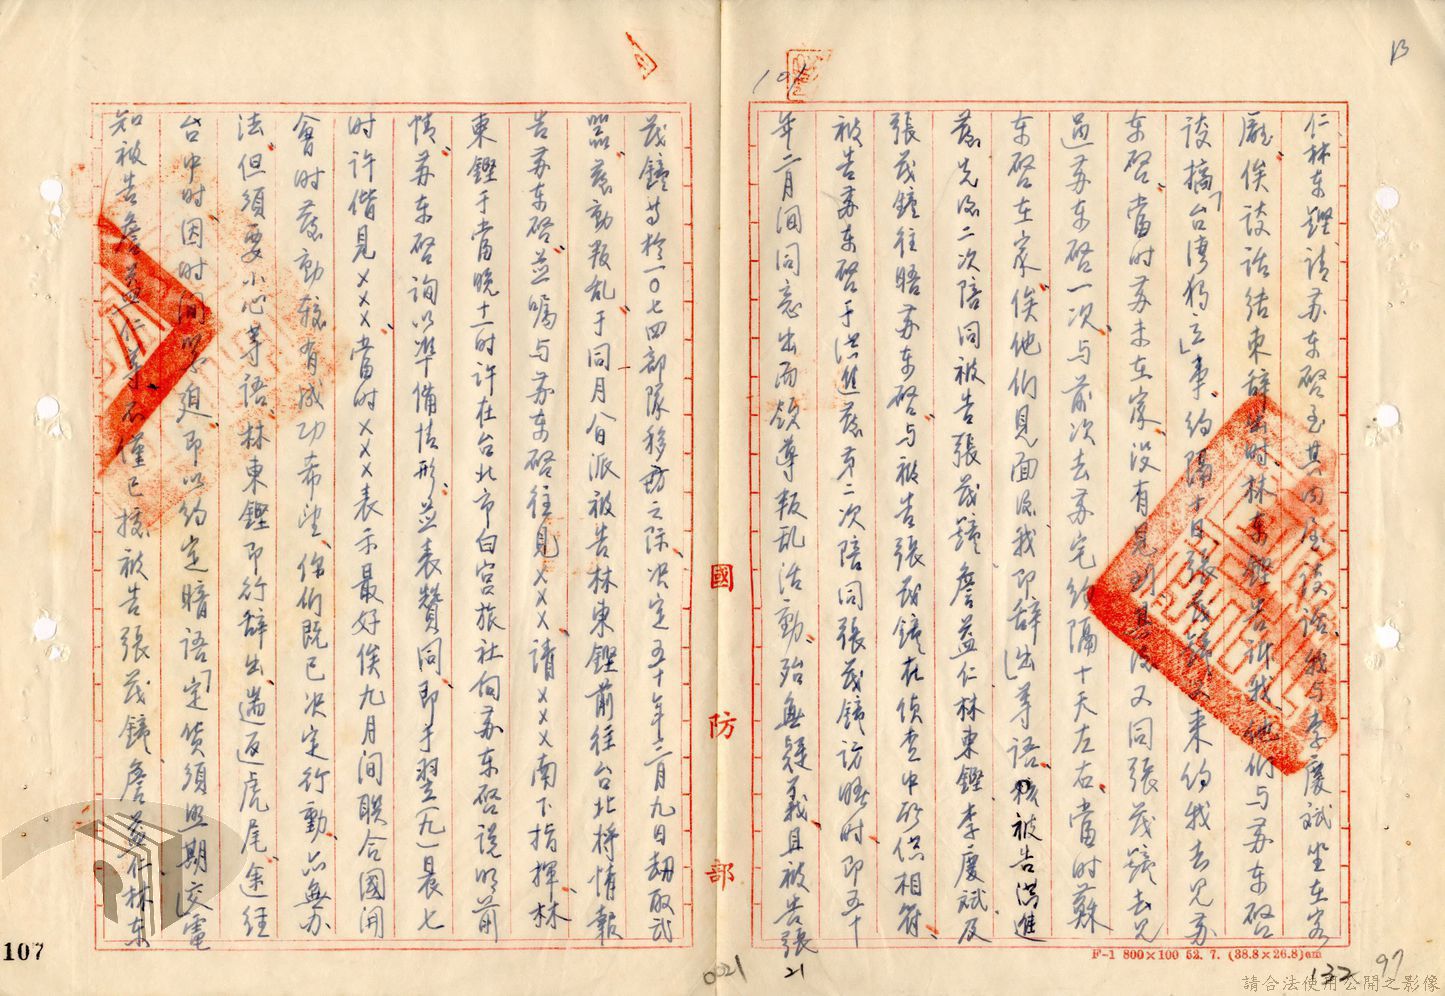 13
仁林东鏗請苏东啓至其內室談話我与李慶斌坐在客
廳俟談話結束辞出时林东鏗告訴我他們与苏东啓
談搞「台湾独立」事約隔十日張茂鐘又来約我去見苏
东啓当时苏未在家没有見到其後又同張茂鐘去見
過苏东啓一次与前次去苏宅約隔十天左右當时蘇
东啓在家俟他們見面後我即辞出」等語核被告洪進
發先後二次陪同被告張茂鐘詹益仁林東鏗李慶斌及
張茂鐘往晤苏东啓与被告張茂鐘在偵查中所供相符
被告苏东啓于洪進發第二次陪同張茂鐘訪晤时即五十
年二月间同意出而領導叛乱活動殆無疑義且被告張
茂鐘等於一〇七四部隊移動之际决定五十年三月九日刼取武
器發動叛乱于同月八日派被告林東鏗前往台北将情報
告苏东啓並嘱与苏东啓往見×××請×××南下指揮林
東鏗于當晚十一时許在台北市白宫旅社向苏东啓説明前
情苏东啓詢以準備情形並表贊同即于翌(九)日晨七
时許偕見×××當时×××表示最好俟九月间联合國開
會时發動較有成功希望你們既已决定行動亦無办
法但須要小心等語林東鏗即行辞出遄返虎尾途経
台中时因时间急迫即以約定暗語「定货須照期交電
知被告詹益仁等不僅已據被告張茂鐘詹益仁林东
國防部
F-1 800×100 52. 7. (38.8×26.8)cm
107
0021
21
132
97
請合法使用公開之影像